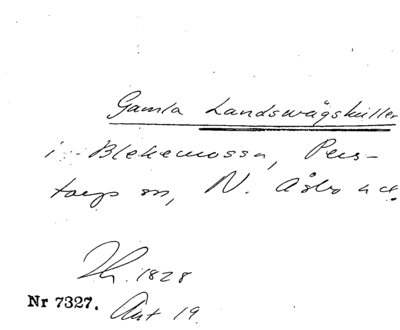 Gamla Landswägskuller
i Blekemossa, Pers-
torps sn, N. Åsbo hd.
Th. 1828
Nr 7327. Ant 19